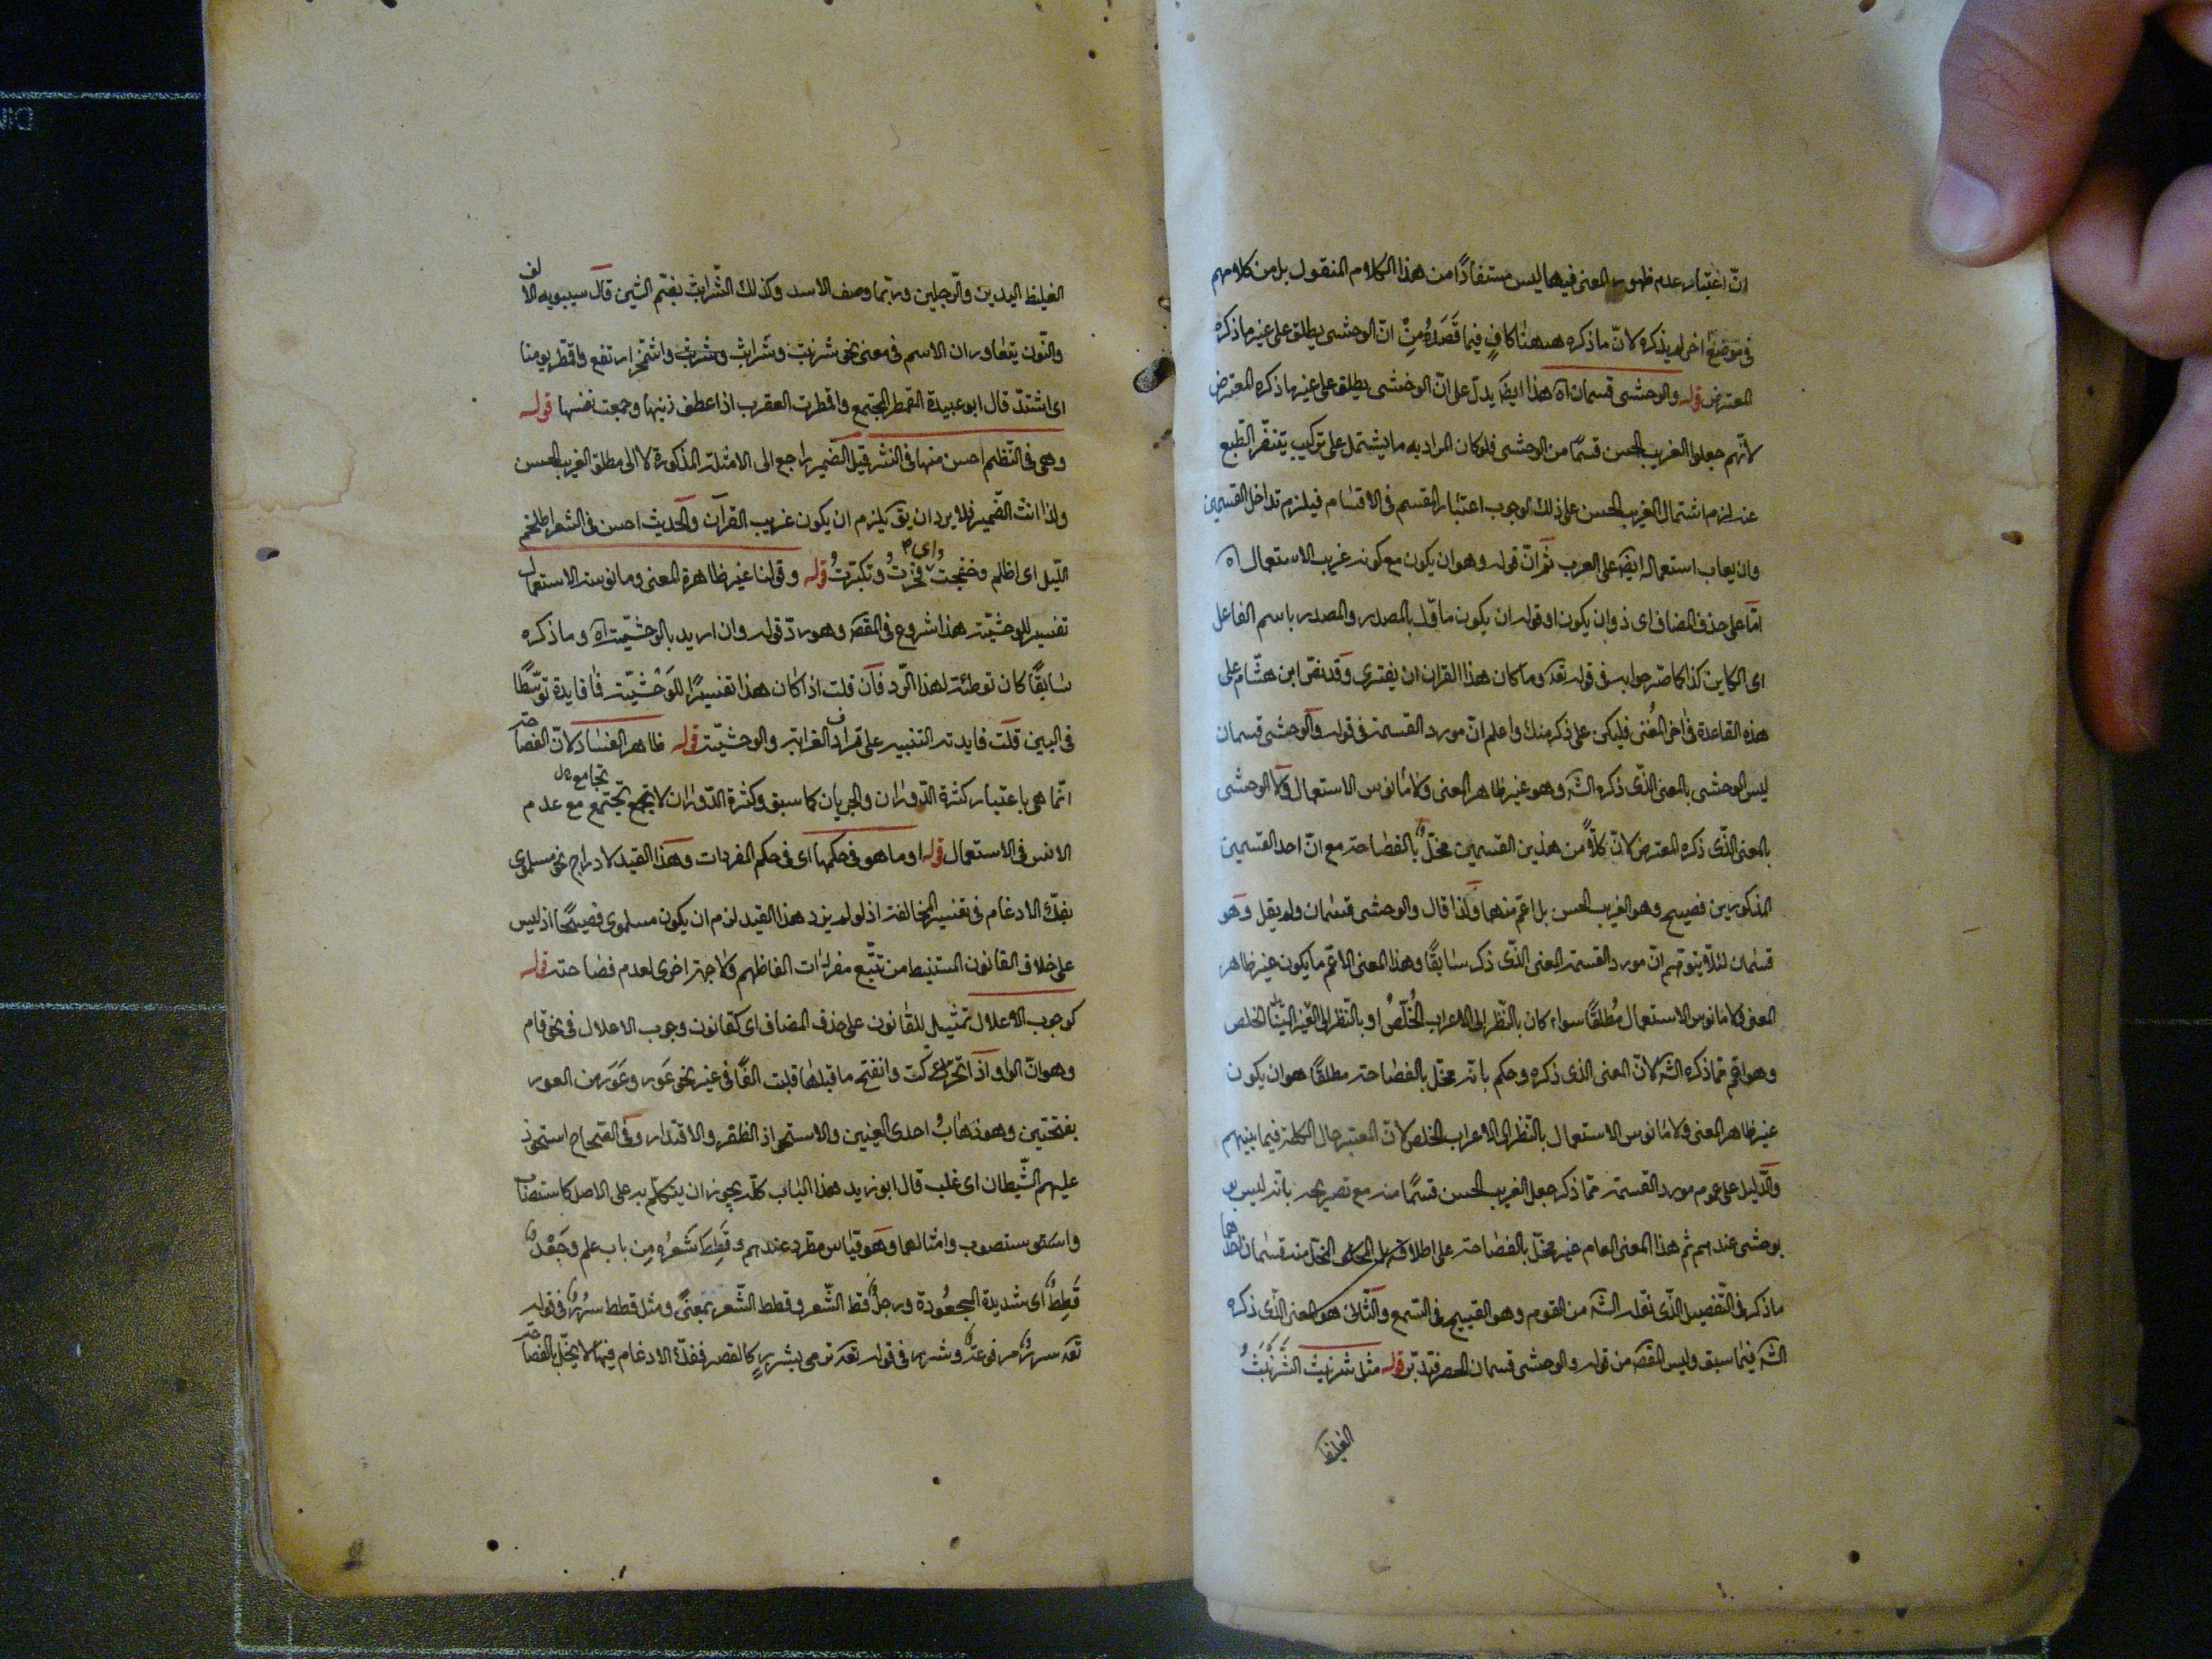 انّ اعتبار عدم ظهور المعنى فيها ليس مستفادًا من هذا الكلام المنقول بل من كلامهم
فى موضع اخر لم يذكره لانّ ما ذكره ههنا كافٍ فيما قَصَدَهُ مِنْ انّ الوحشى يطلق على غير ما ذكره
المعترض قوله والوحشى قسمان اه هذا ايضَ يدلّ على انّ الوحشى يطلق على غير ما ذكره المعترض
لانّهم جعلوا الغريب الحسن قسمًا من الوحشى فلو كان المراد به ما يشتمل على تركيب يتنفّر الطّبع
عنه لزم اشتمال الغريب الحسن على ذلك لوجوب اعتبار المقسم فى الاقسام فيلزم تداخل القسمين
وان يعاب استعماله ايضَ على العرب ثمّ انّ قوله وهو ان يكون مع كونه غريب الاستعمال اه
امّا على حذف المضاف اى ذو ان يكون او قوله ان يكون ماوّل بالمصدر والمصدر باسم الفاعل
اى الكاين كذا كما صرّحوا به فى قوله تعَ وما كان هذا القران ان يفترى وقد نصّ ابن هشام على
هذه القاعدة فى اخر المُغنى فليكن على ذكر منك واعلم انّ مورد القسمة فى قوله والوحشى قسمان
ليس الوحشى بالمعنى الذّى ذكره الشَ وهو غير ظاهر المعنى ولا مانوس الاستعمال ولا الوحشى
بالمعنى الذّى ذكره المعترض لانّ كلاًّ من هذين القسمين مخلّ بالفصاحة مع انّ احد القسمين
المذكورين فصيح وهو الغريب الحسن بل اعمّ منهما ولذا قال والوحشى قسمان ولم يقل وهو
قسمان لئلاّ يتوهّم انّ مورد القسمة المعنى الذّى ذكر سابقًا وهذا المعنى الاعمّ ما يكون غير ظاهر
المعنى ولا مانوس الاستعمال مُطلقًا سواء كان بالنّظر الى الاعراب الخُلّصُ او بالنّظر الى الغير الخلص
وهو اعمّ ممّا ذكره الشَ لانّ المعنى الذى ذكره وحكم بانّه مخلّ بالفصاحة مطلقًا هو ان يكون
غير ظاهر المعنى ولا مانوس الاستعمال بالنّظر الى الاعراب الخلص لانّ المعتبر حال الكلمة فيما بينهم
والدّليل على عموم مورد القسمة ممّا ذكر جعل الغريب الحسن قسمًا منه مع تصريحه بانّه ليس بو
بوحشى عندهم ثم هذا المعنى العام غير مخلّ بالفصاحة على اطلاقه بل المخلّ منه قسمان احدهما
ما ذكر فى التّفصيل الذّى نقله الشَ من القوم وهو القبيح فى السّمع والثّانى هو المعنى الذّى ذكره
الشَ فيما سبق وليس المقصَ من قوله والوحشى قسمان الحصر فتدبّر قوله مثل شرنبث الشَّرَنْبَثُ
الغليظ
الغليظ اليدين والرّجلين وربّما وصف الاسد وكذلك الشّرابث بضمّ الشين قال سيبويه الالف
والنّون يتعاوران الاسم فى معنى نحو شرنبث وشرابث وشرنبث واشمخرّ ارتفع واقمطرّ يومنا
اى اشتدّ قال ابو عبيدة القمطر المجتمع واقمطرت العقرب اذا عطف ذنبها وجمعت نفسها قوله
وهى فى النّظم احسن منها فى النّثر قيل الضّمير راجع الى الامثلة المذكورة لا الى مطلق الغريب الحسن
ولذا انث الضّمير فلا يرد ان يقَ يلزم ان يكون غريب القرآن والحديث احسن فى الشعر اطلخم
اللّيل اى اظلم وخفجت اى فخرتُ وتكبّرتُ قوله وقولنا غير ظاهرة المعنى ومانوسة الاستعمال
تفسير للوحشيّة هذا شروع فى المقصَ وهو ردّ قوله وان اريد بالوحشيّة اه وما ذكره
سابقًا كان توطئة لهذا الرّد فان قلت اذا كان هذا تفسيرًا للوَحْشيّة فما فايدة توسّطها
فى البين قلت فايدته التنبيه على ترادف الغرابة والوحشيّة قوله ظاهر الفساد لانّ الفصاحة
انّما هى باعتبار كثرة الدّوران والجريان كما سبق وكثرة الدّوران لا يجتمع تجامع مع عدم
الانس فى الاستعمال قوله او ما هو فى حكمها اى فى حكم المفردات وهذا القيد لادراج نحو مسلموى
بفكّ الادغام فى تفسير المخالفة اذ لو لم يزد هذا القيد لزم ان يكون مسلموى فصيحًا اذ ليس
على خلاف القانون المستنبط من تتبّع مفردات الفاظهم ولا جهة اخرى لعدم فصاحته قوله
كوجوب الاعلال تمثيل للقانون على حذف المضاف اى كقانون وجوب الاعلال فى نحو قام
وهو انّ الواو اذا تحرّكت وانفتح ما قبلها قلبت الفًا فى غير نحو عَور وعَوَر من العور
بفتحتين وهو ذهابُ احدى العينين والاستحواذ الظفر والاقتدار وفى الصّحاح استحوذ
عليهم الشّيطان اى غلب قال ابو زيد هذا الباب كلّه يجوز ان يتكلّم به على الاصل كاستصاب
واستصوب وامثالها وهو قياس مطرد عندهم وقَطِطَ شَعَرُه مِن باب علم وجَعْدٌ
قَطِطٌ اى شديدة الجعُودة ورجلٌ قط الشّعر وقطط الشّعر بمعنىً ومثل قطط سُرُرٌ فى قوله
تعَ سررٌ مرفوعةٌ وشرر فى قوله تعَ ترمى بشررٍ كالقصر ففكّ الادغام فيها لا يخلّ بالفصاحة